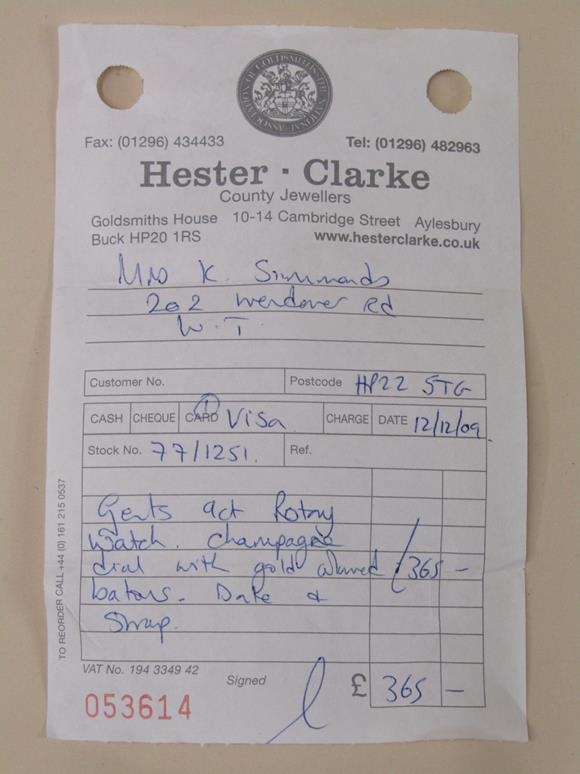 NATIONAL ASSOCIATION OF GOLDSMITHS
Fax: (01296) 434433 Tel: (01296) 482963
Hester · Clarke
County Jewellers
Goldsmiths House 10-14 Cambridge Street Aylesbury
Buck HP20 1RS www.hesterclarke.co.uk
Mrs K. Simmonds
202 Wendover Rd
W.T.
Customer No. Postcode HP22 5TG
CASH CHEQUE CARD Visa CHARGE DATE 12/12/09
Stock No. 77/1251. Ref.
Gents 9ct Rotary
Watch. Champagne
dial with gold 365 -
batons. Date &
Strap.
VAT No. 194 3349 42
Signed £ 365 -
053614
TO REORDER CALL +44 (0) 161 215 0537